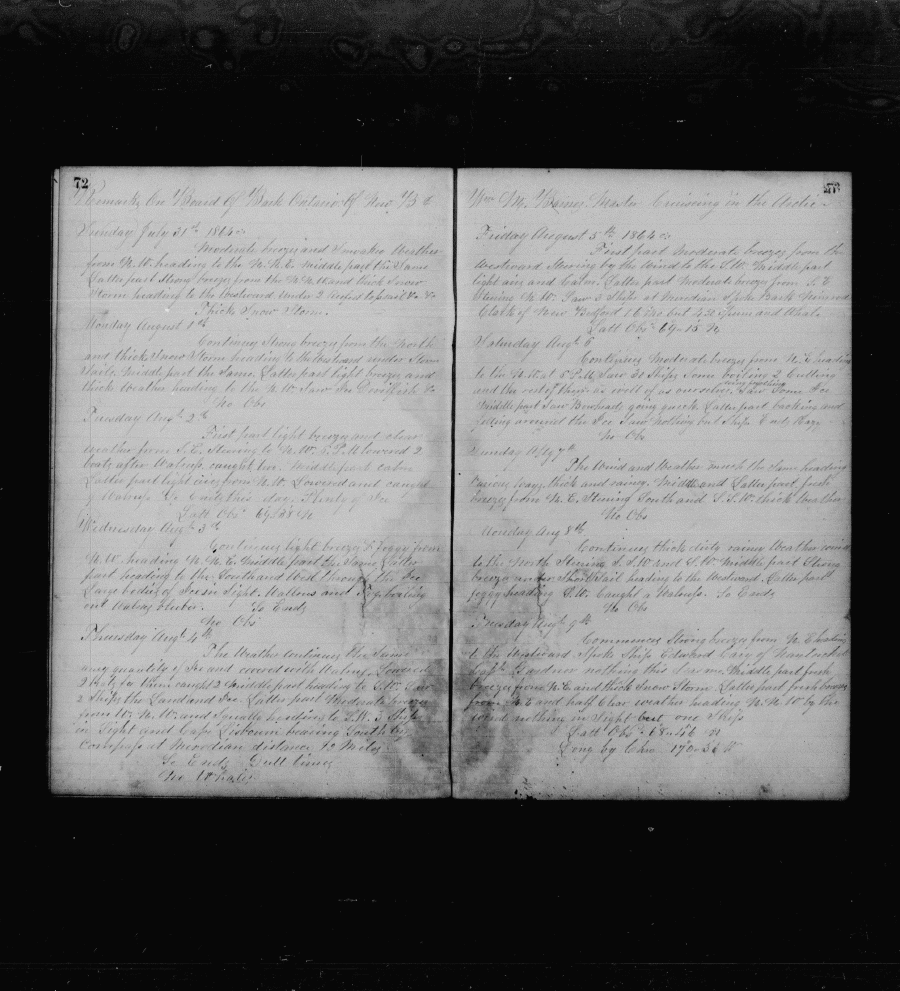 72
Remarks On Board Of Bark Ontario Of New B
Sunday July 31st 1864
Moderate breeze and Weather
from N.W. heading to the N.N.E. Middle part the Same
Latter part Strong breeze from the N.N.E. and thick Snow
Storm heading to the westward under 2
Thick Snow Storm.
Monday August 1st
Continues Strong breeze from the North
and thick Snow Storm heading to the Westward under Storm
Sails Middle part the Same. Latter part light breeze and
thick Weather heading to the N.W. Saw
No Obs
Tuesday Augt 2th
First part light breeze and clear
Weather from S.E. Steering to N.W. 5 P.M. lowered 2
boats after Walruss caught two. Middle part calm
Latter part light airs from N.W. Lowered and caught
Walruss So Ends this day. Plenty of Ice
Latt Obs 69-28 N
Wednesday Augt 3th
Continues light breeze & foggy from
N.W. heading N.N.E. Middle part the Same Latter
part heading to the South and West through the Ice
Large bodies of Ice in Sight. Walruss and boiling
out Walruss blubber. So Ends
No Obs
Thursday Augt 4th
The Weather continues the Same
any quantity of Ice and covered with Walruss. Lowered
2 boats for them caught 2 Middle part heading to S.W. Saw
2 Ships the Land and Ice. Latter part Moderate breeze
from W.N.W. and Smooth heading to S.W. 3 Ships
in Sight and Cape Lisbourn bearing South by
Compass at Meridian distance 12 Miles
So Ends Dull times
No Whales
Wm M. Barnes Master Cruising in the Arctic
Friday August 5th 1864
First part Moderate breeze from the
Westward Steering by the Wind to the S.W. Middle part
light airs and Calm. Latter part Moderate breeze from S.E
Steering N.W. Saw 3 Ships at Meridian Spoke Bark Minerva
Clark of New Bedford 16 Mo out 450 Sperm and Whale
Latt Obs 69-15 N
Saturday Augt 6
Continues Moderate breeze from N.E heading
to the N.W. at 5 P.M. Saw 31 Ships Some boiling 2 Cutting
and the rest of them as well of as ourselves Saw Some Ice
Middle part Saw Bowheads going quick. Latter part backing and
filling around the Ice Saw nothing but Ships Ends Hazy
No Obs
Sunday Aug 7th
The Wind and Weather much the Same heading
various ways thick and rainy. Middle and Latter part fresh
breeze from N.E. Steering South and S.S.W. thick Weather
No Obs
Monday Aug 8th
Continues thick dirty rainy Weather wind
to the North Steering S.S.W and S.W Middle part Strong
breeze under Short Sail heading to the Westward. Latter part
foggy heading S.W. Caught a Walruss. So Ends
No Obs
Tuesday Augt 9th
Commences Strong breeze from N.E heading
to the Westward Spoke Ship Edward Cary of Nantucket
Capt Gardner nothing this Season. Middle part fresh
breeze from N.E and thick Snow Storm Latter part fresh breeze
from N.E and half Clear Weather heading N.N.W by the
wind nothing in Sight but one Ship
Latt Obs 68-46 N
Long by Chro 170-36 W